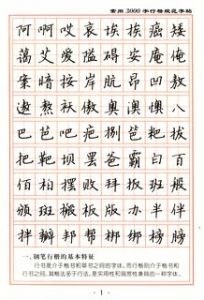 常用3000字行楷规范字帖
阿啊哎哀埃挨癌矮
蔼艾爱隘碍安俺
案暗按岸肮昂凹敖
遨熬袄傲奥澳懊八
巴芭吧疤捌笆粑拔
把靶坝罢爸霸白百
佰柏摆败拜扳班般
颁斑搬板版办半伴
拌瓣邦帮梆绑榜膀
一、钢笔行楷的基本特征
行书是介于楷书和草书之间的字体，而行楷则介于楷书和
行书之间，其楷法多于行法，是实用性和观赏性兼具的一种字体。
· 1 ·